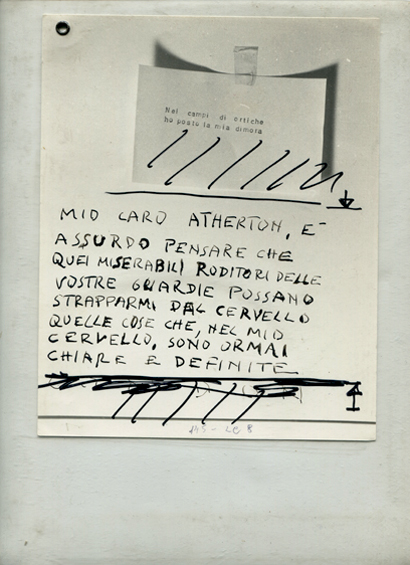 Nei campi di ortiche
ho posto la mia dimora
MIO CARO ATHERTON, E'
ASSURDO PENSARE CHE
QUEI MISERABILI RODITORI DELLE
VOSTRE GUARDIE POSSANO
STRAPPARMI DAL CERVELLO
QUELLE COSE CHE, NEL MIO
CERVELLO, SONO ORMAI
CHIARE E DEFINITE